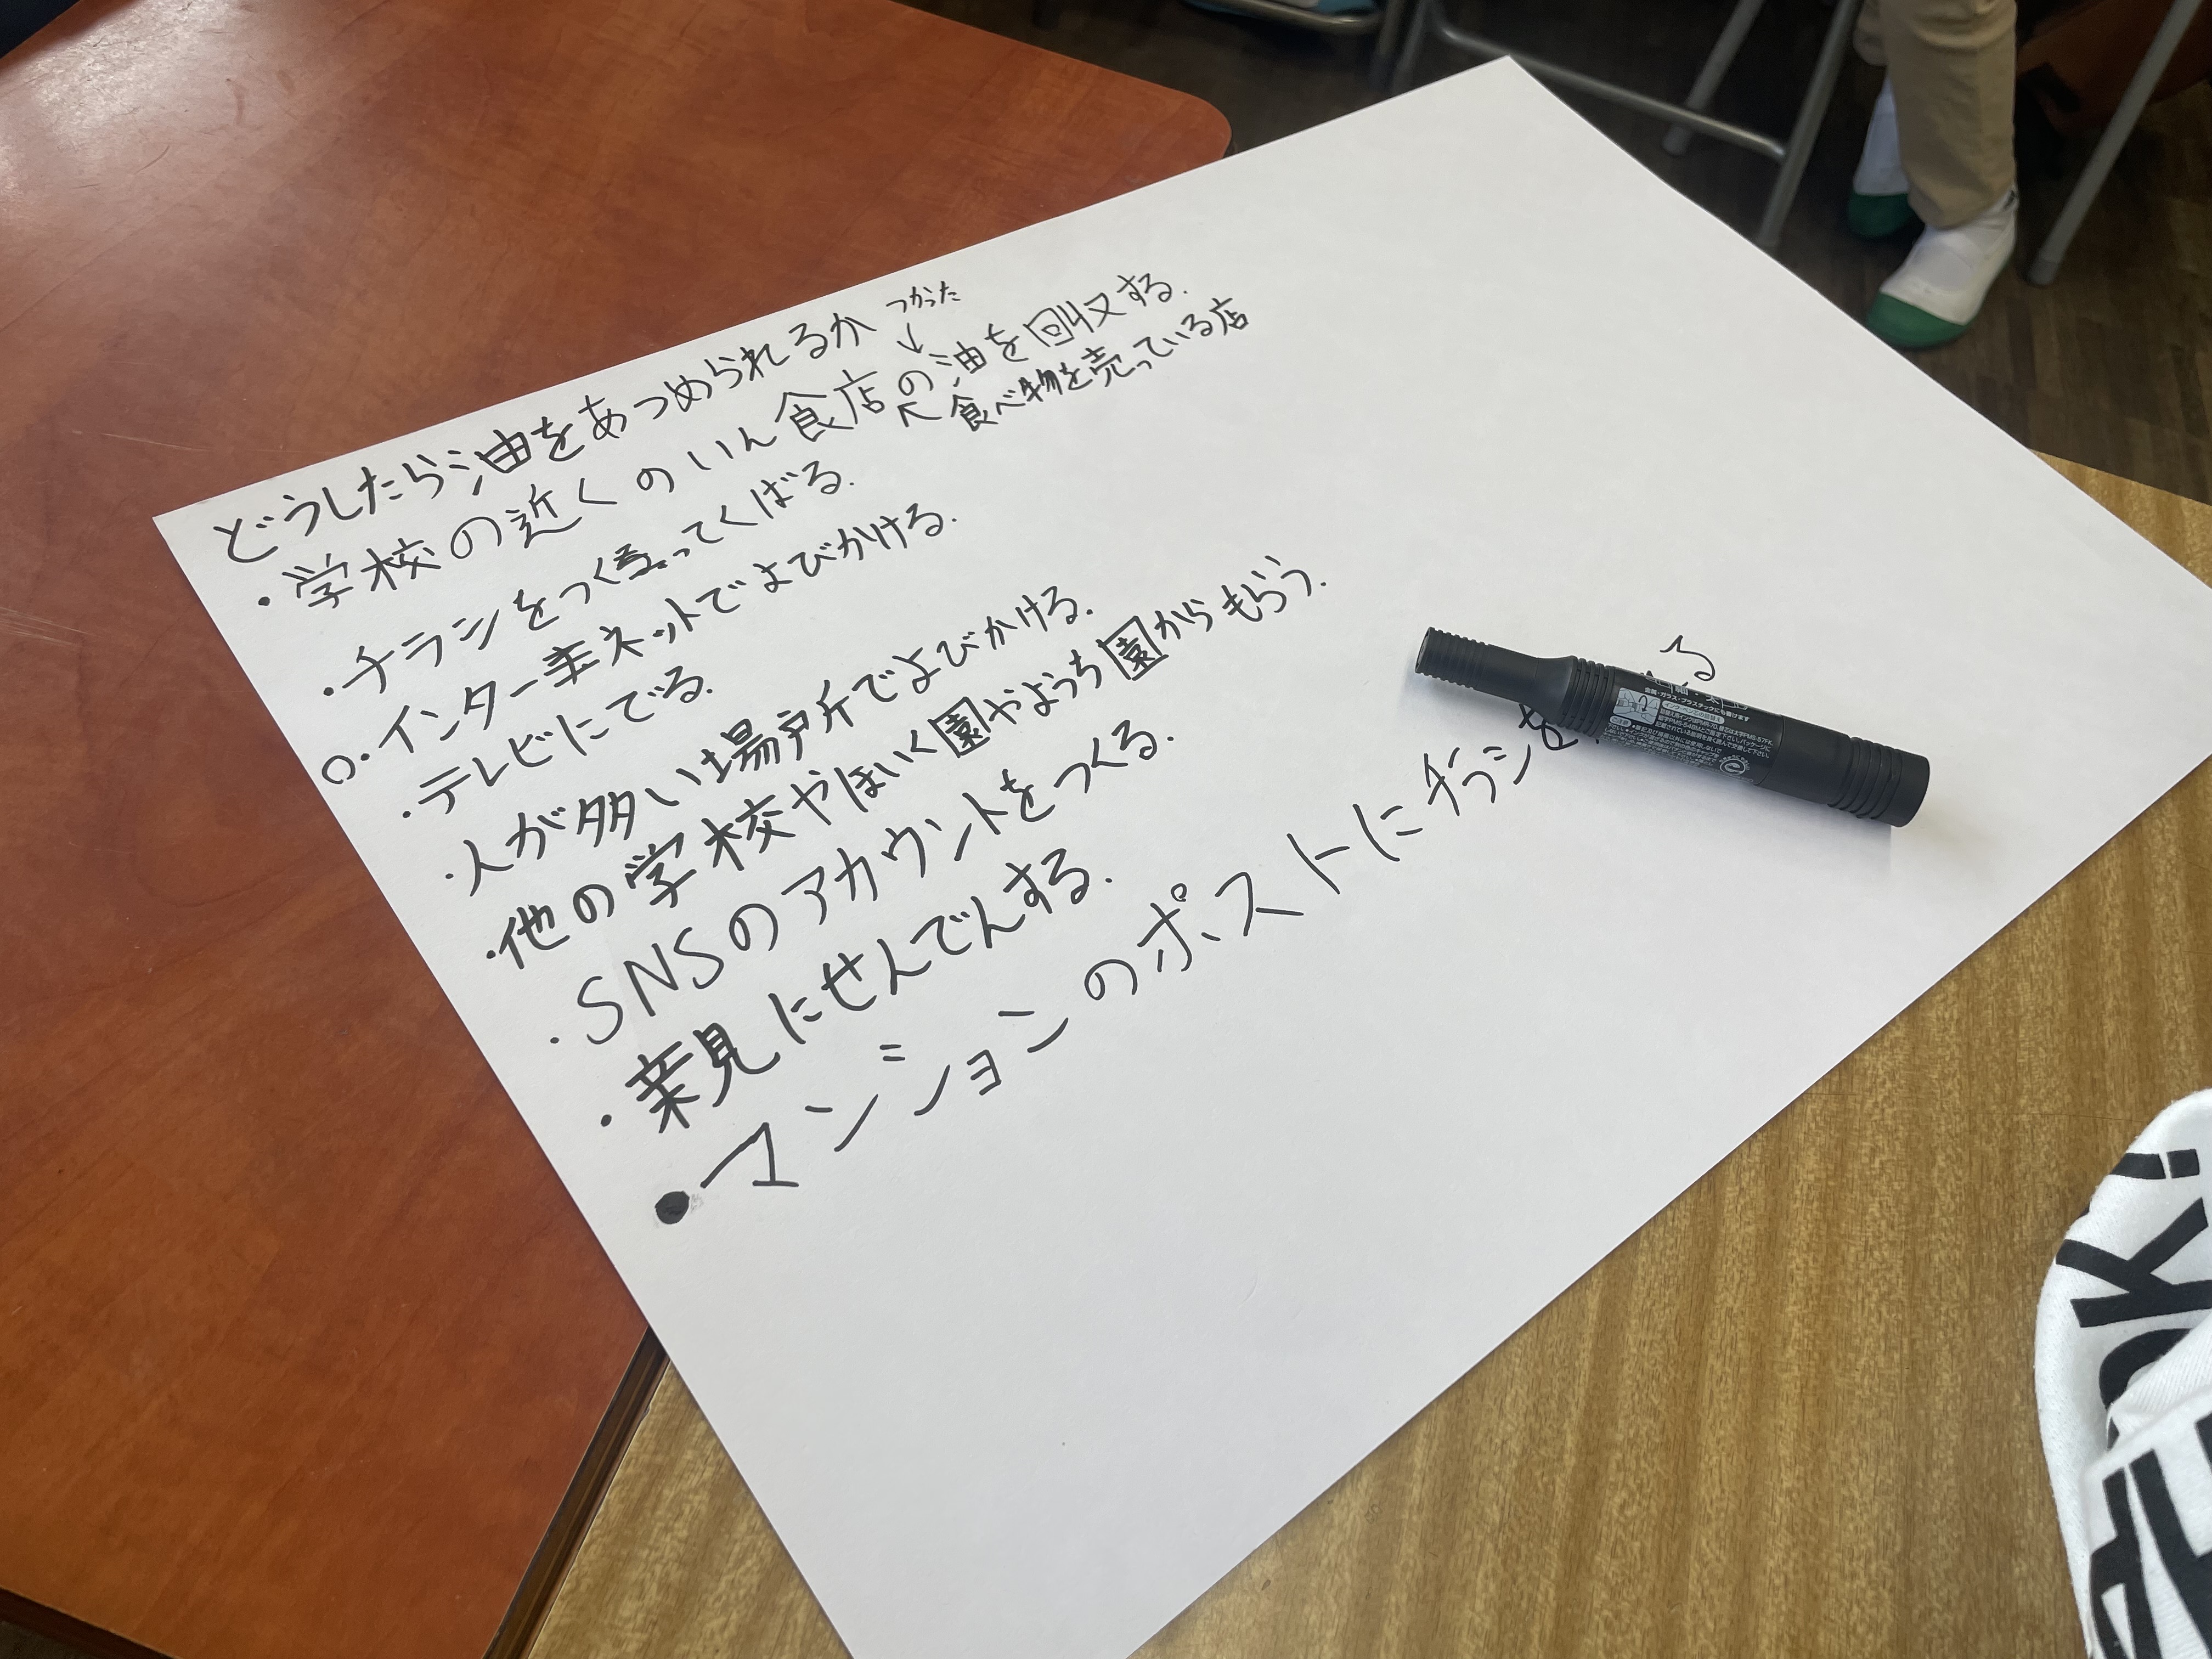 つかった
どうしたら油をあつめられるか
・学校の近くのいん食店の油を回収する.
食べ物を売っている店
・チラシをつくってくばる.
○・インターネットでよびかける.
・テレビにでる.
・人が多い場所でよびかける.
・他の学校やほいく園やようち園からもらう.
・SNSのアカウントをつくる.
・親にせんでんする.
・マンションのポストにチラシを
る
OK!